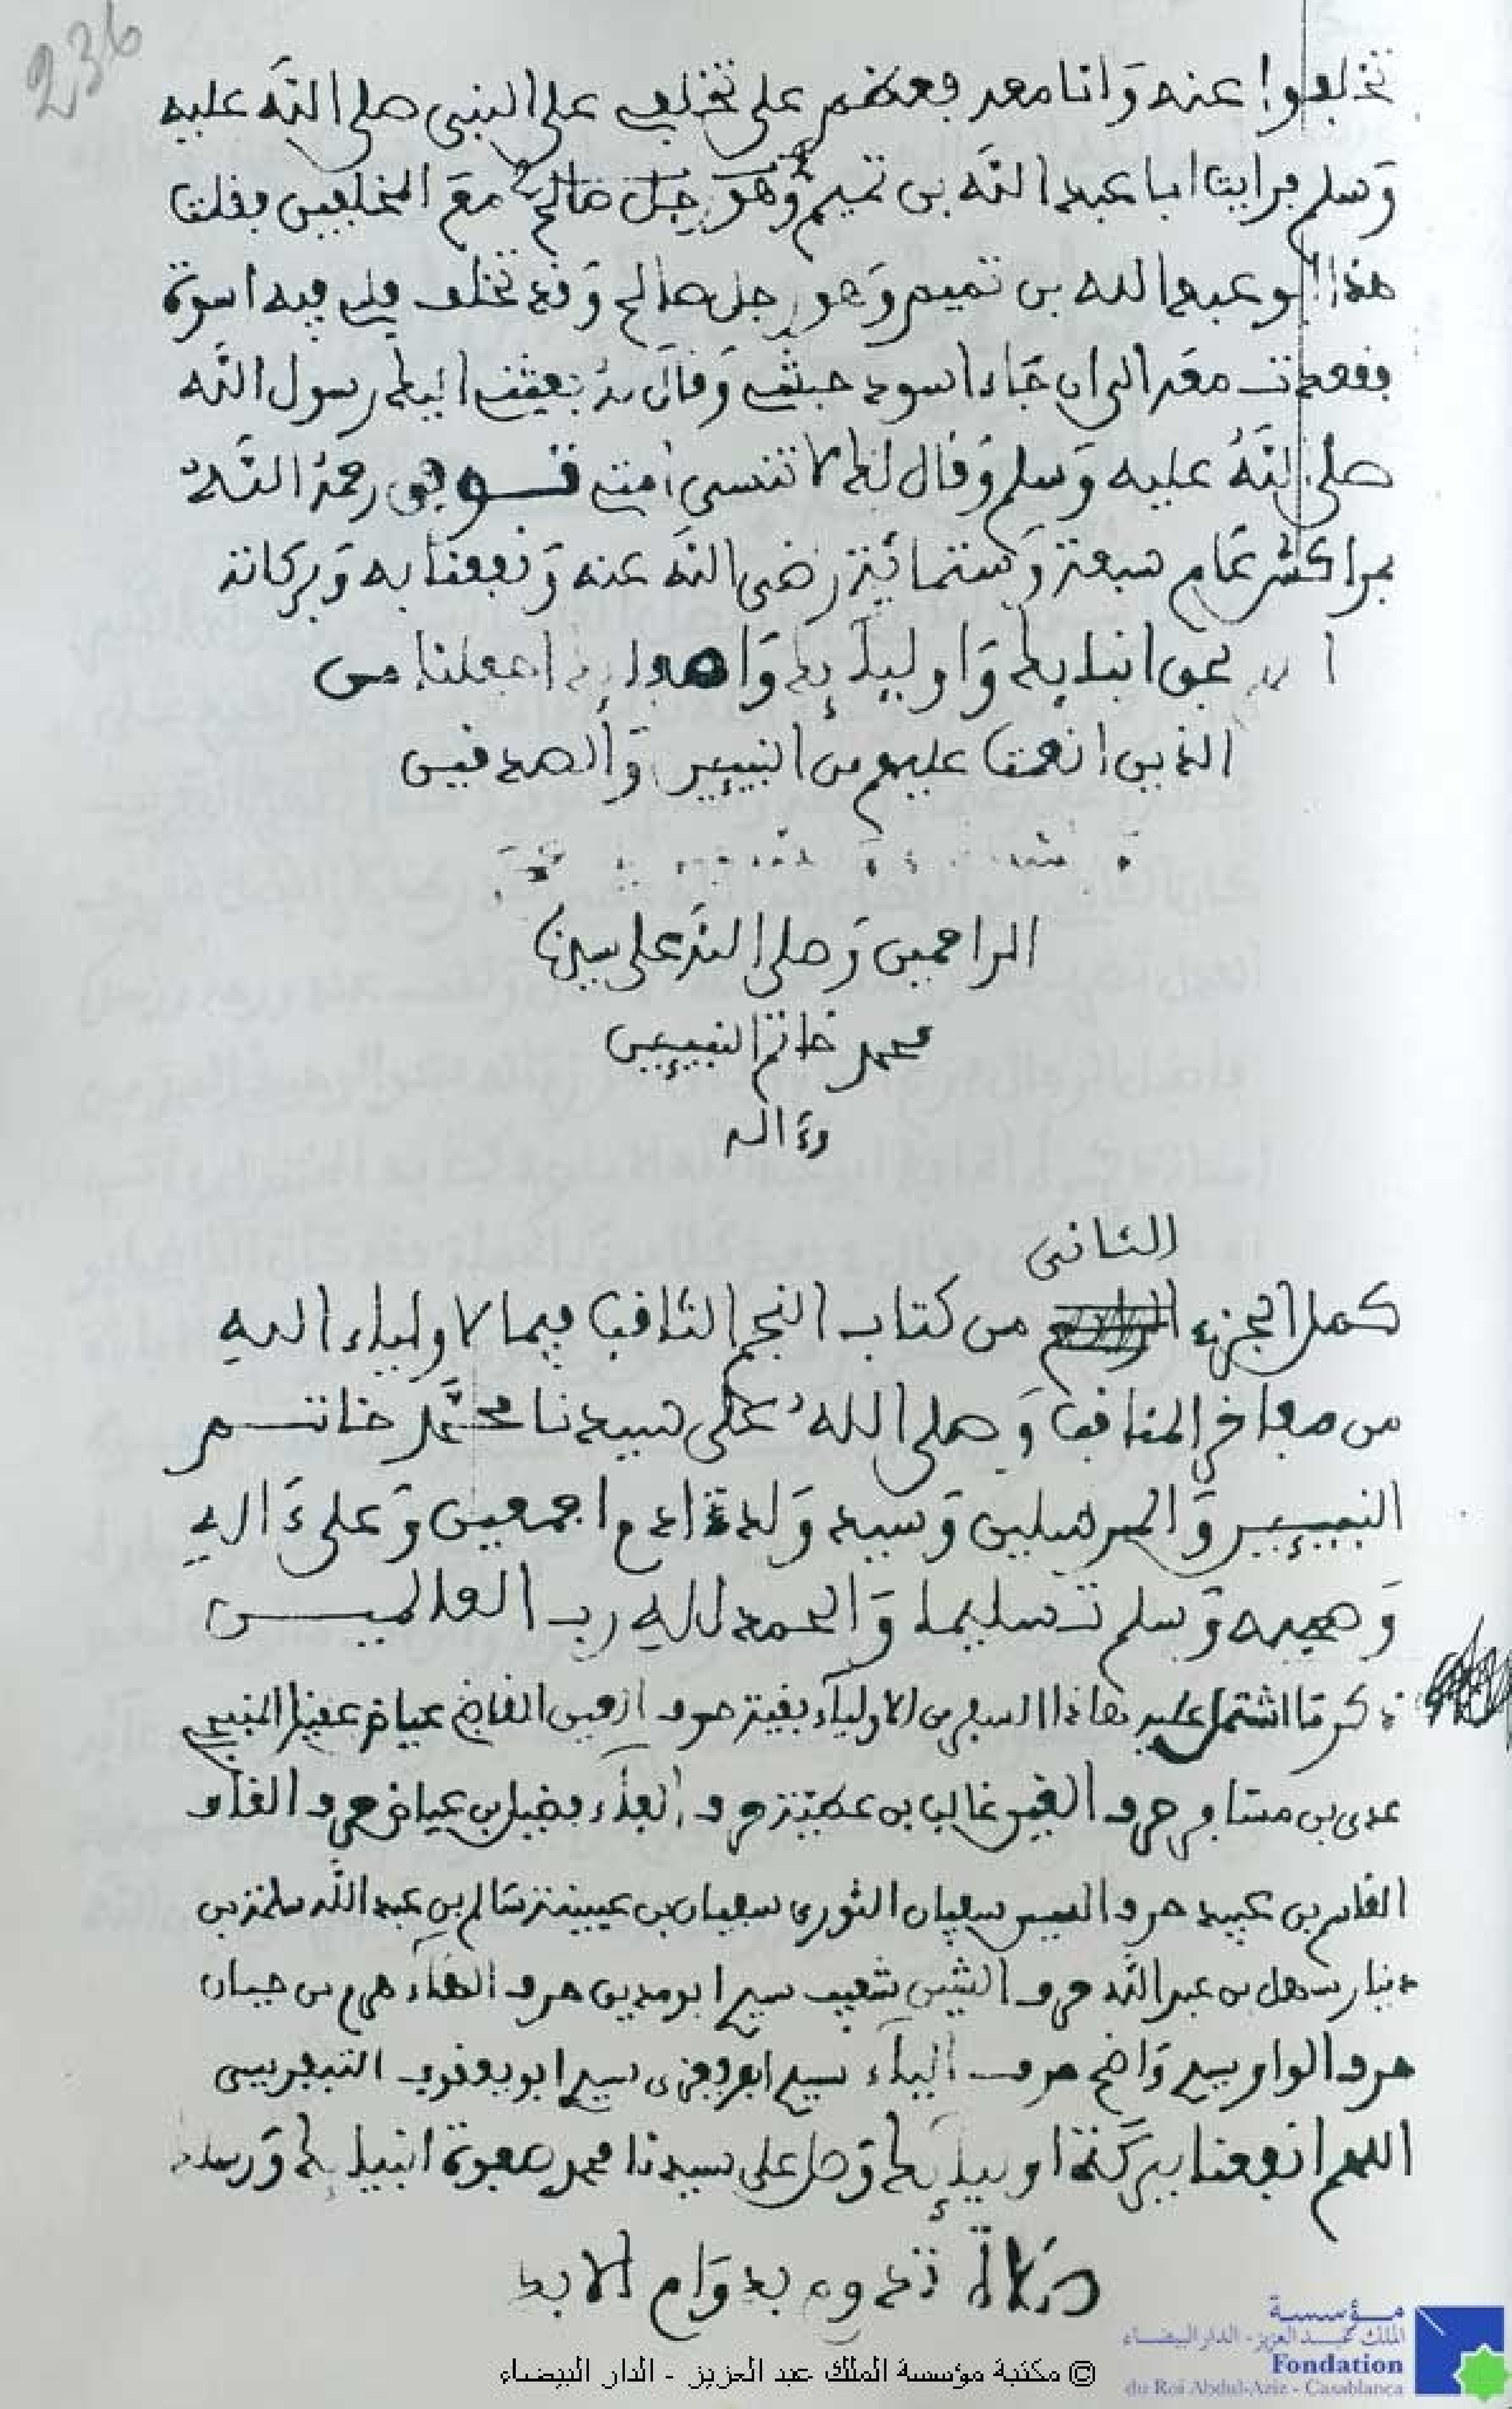 236
تخلفوا عنه وانا معهم فعظم على تخلفي على النبي صلى الله عليه
وسلم فرايت ابا عبد الله بن تميم وهو رجل صالح مع المخلفين فقلت
هذا ابو عبد الله بن تميم وهو رجل صالح وقد تخلف فلي فيه اسوة
فقعدت معه الى ان جاء اسود حبشي وقال بعثني اليك رسول الله
صلى الله عليه وسلم وقال لك لا تنسى امتي توفي رحمه الله
بمراكش عام سبعة وستمائة رضي الله عنه ونفعنا به وبركاته
بحق انبيايك واوليايك اجعلنا من
الذين انعمت عليهم من النبيين والصدقين
الراحمين وصلى الله على سيدنا
محمد خاتم النبيين
وءاله
الثاني
كمل الجزء من كتاب النجم الثاقب فيما لاولياء الله
من مفاخر المناقب وصلى الله على سيدنا محمد خاتم
النبيين والمرسلين وسيد ولد ءادم اجمعين وعلى ءاله
وصحبه وسلم تسليما والحمد لله رب العلمين
ذكر ما اشتمل عليه هاذا السفر من الاولياء بقية حرف العين القاضي عياض عقيل المنبجي
عدي بن مسافر حرف الغين غالب بن عطية حرف الفاء فضيل بن عياض حرف القاف
القاسم بن عبيد حرف السين سفيان الثوري سفيان بن عيينة سالم بن عبد الله سلمة بن
دينار سهل بن عبد الله حرف الشين شعيب سيدي ابو مدين حرف الهاء هرم بن حيان
حرف الواو سيدي واضح حرف الياء سيدي ابو يعزى سيدي ابو يعقوب التبغريسي
اللهم انفعنا ببركة اوليايك وصل على سيدنا محمد صفوة انبيايك ورسلك
صلاة تدوم بدوام الابد
مؤسسة
الملك عبد العزيز - الدار البيضاء
Fondation
du Roi Abdul-Aziz - Casablanca
© مكتبة مؤسسة الملك عبد العزيز - الدار البيضاء